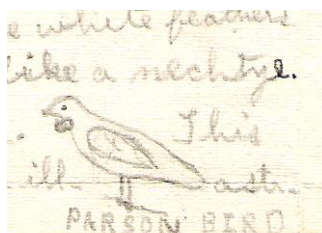 e white feathers
like a necktye.
This
ill
astr
PARSON BIRD